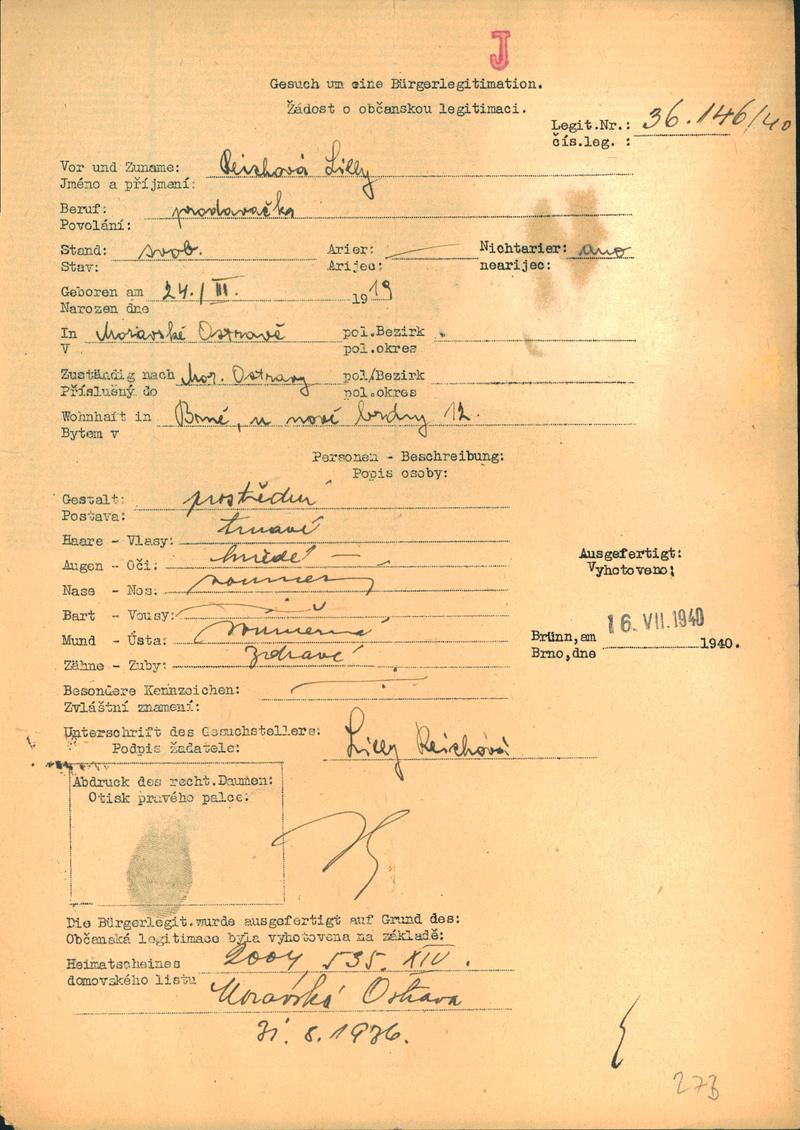 J
Gesuch um eine Bürgerlegitimation.
Žádost o občanskou legitimaci.
Legit.Nr.: 36.146/40
čís.leg. :
Vor und Zuname: Reichová Lilly
Jméno a příjmení:
Beruf: prodavačka
Povolání:
Stand: svob. Arier: Nichtarier: ano
Stav: Arijec: nearijec:
Geboren am 24./III. 1919
Narozen dne
In Moravské Ostravě pol.Bezirk
V pol.okres
Zuständig nach Mor. Ostravy pol/Bezirk
Příslušný do pol.okres
Wohnhaft in Brně, u nové brány 12.
Bytem v
Personen - Beschreibung:
Popis osoby:
Gestalt: prostřední
Postava:
Haare - Vlasy: tmavé
Augen - Oči: hnědé
Nase - Nos:
Bart - Vousy:
Mund - Ústa: souměrná
Zähne - Zuby: zdravé
Ausgefertigt:
Vyhotoveno:
Brünn,am 16. VII. 1940 1940.
Brno,dne
Besondere Kennzeichen:
Zvláštní znamení:
Unterschrift des Gesuchstellers: Lilly Reichová
Podpis žadatele:
Abdruck des recht.Daumen:
Otisk pravého palce:
Die Bürgerlegit.wurde ausgefertigt auf Grund des:
Občanská legitimace byla vyhotovena na základě:
Heimatscheines 2004 535. XIV.
domovského listu Moravská Ostrava
31. 8. 1936.
273